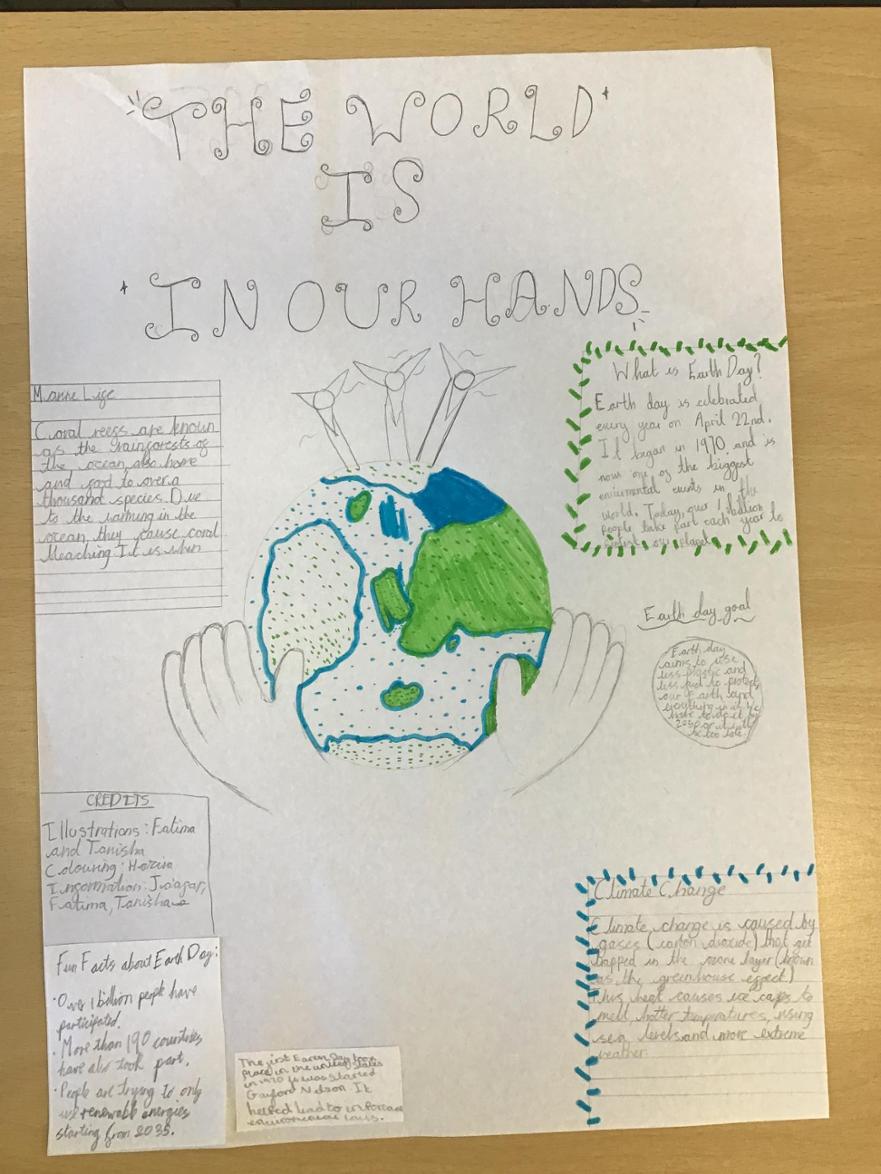 "THE WORLD"
IS
"IN OUR HANDS"
Marine Life
Coral reefs are known
as the rainforests of
the ocean, also home
and food to over a
thousand species. Due
to the warming in the
ocean, they cause coral
bleaching. It is when
What is Earth Day?
Earth day is celebrated
every year on April 22nd.
It began in 1970 and is
now one of the biggest
events in the
world. Today, over 1 billion
people take part each year to
protect our planet
Earth day goal
Earth day
aims to use
less plastic and
less fuel to protect
our earth and
everything in it. We
have to do it by
too late.
CREDITS
Illustrations: Fatima
and Tanisha
Colouring:
Information:
Fatima, Tanisha
Fun Facts about Earth Day:
• Over 1 billion people have
participated.
• More than 190 countries
have also took part.
• People are trying to only
use renewable energies
starting from 2035.
The first Earth Day took
place in the united states
in 1970 it was started
Gaylord Nelson It
helped lead to
laws.
Climate Change
Climate change is caused by
gases (carbon dioxide) that get
trapped in the ozone layer (known
as the greenhouse effect)
This heat causes ice caps to
melt, hotter temperatures, rising
sea levels and more extreme
weather